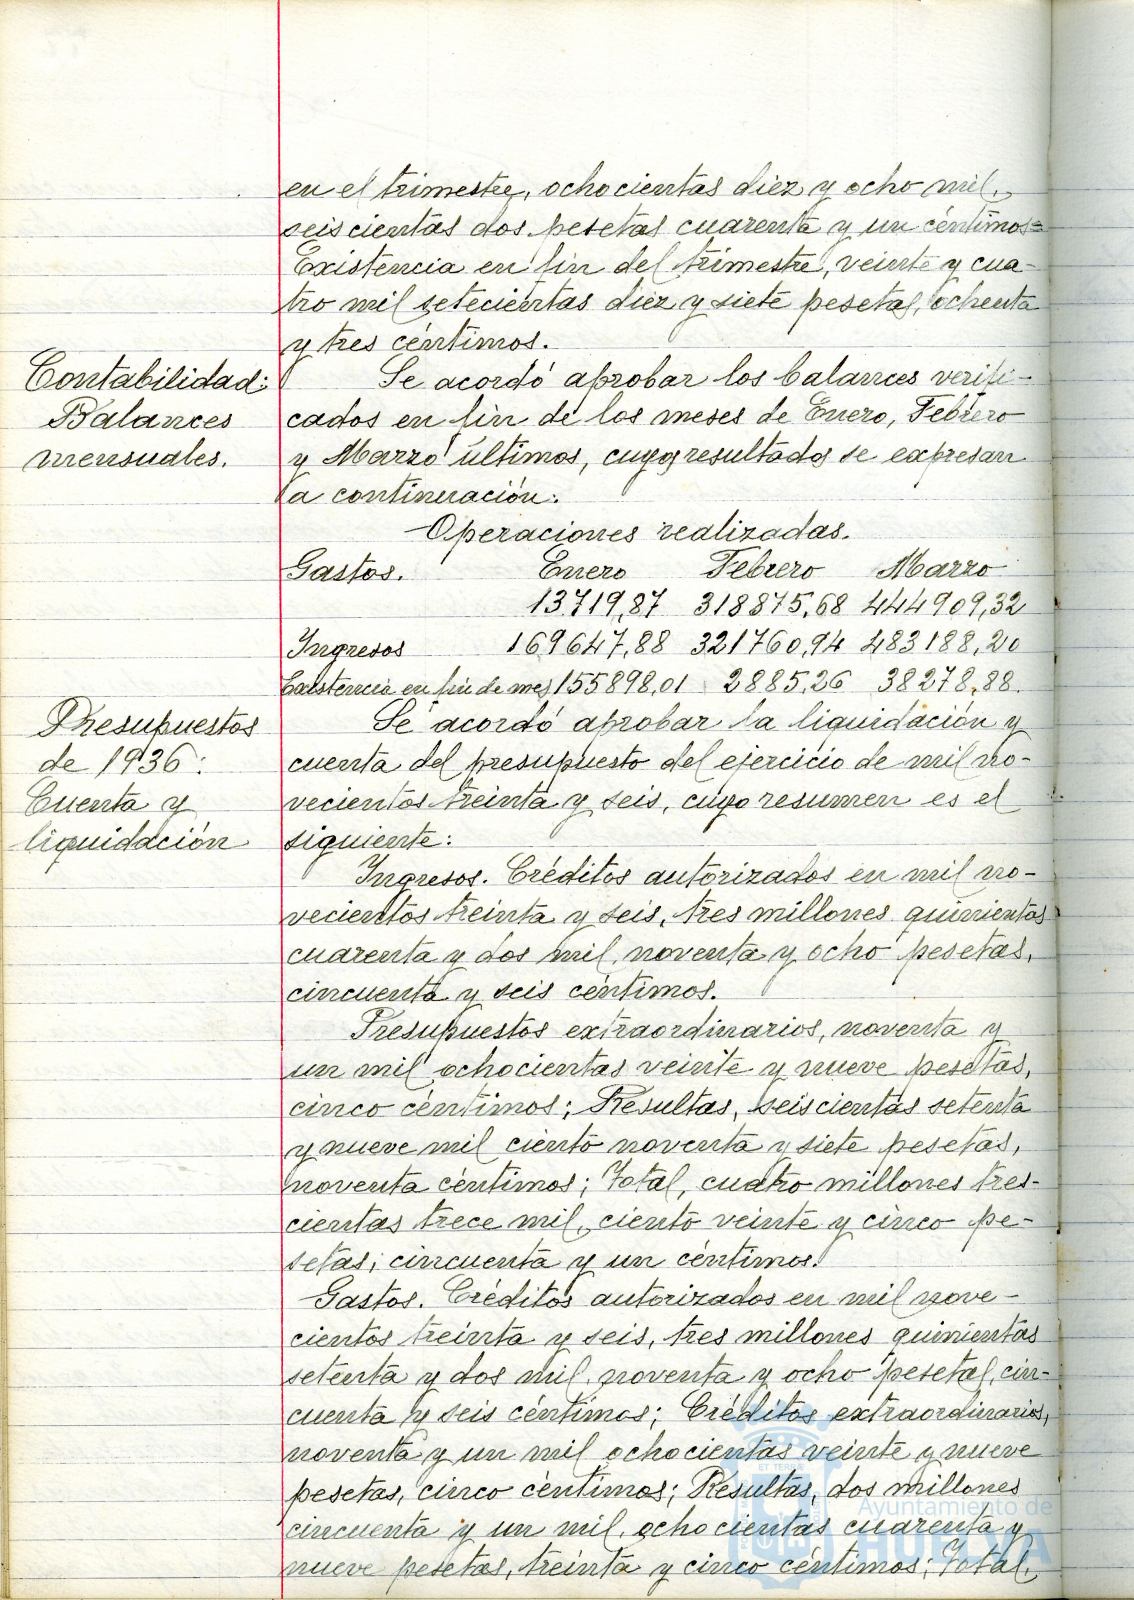 en el trimestre, ochocientas diez y ocho mil,
seiscientas dos pesetas cuarenta y un céntimos=
Existencia en fin del trimestre, veinte y cua-
tro mil setecientas diez y siete pesetas, ochenta
y tres céntimos.
Contabilidad:
Balances
mensuales.
Se acordó aprobar los balances verifi-
cados en fin de los meses de Enero, Febrero
y Marzo últimos, cuyos resultados se expresan
a continuación:
Operaciones realizadas.
Gastos. Enero Febrero Marzo
13719,87 318875,68 444909,32
Ingresos 169647,88 321760,94 483188,20
Existencia en fin de mes 155898,01 2885,26 38278,88.
Presupuestos
de 1936:
Cuenta y
liquidación
Se acordó aprobar la liquidación y
cuenta del presupuesto del ejercicio de mil no-
vecientos treinta y seis, cuyo resumen es el
siguiente:
Ingresos. Créditos autorizados en mil no-
vecientos treinta y seis, tres millones quinientas
cuarenta y dos mil, noventa y ocho pesetas,
cincuenta y seis céntimos.
Presupuestos extraordinarios, noventa y
un mil ochocientas veinte y nueve pesetas,
cinco céntimos; Resultas, seiscientas setenta
y nueve mil ciento noventa y siete pesetas,
noventa céntimos; Total, cuatro millones tres-
cientas trece mil, ciento veinte y cinco pe-
setas; cincuenta y un céntimos.
Gastos. Créditos autorizados en mil nove-
cientos treinta y seis, tres millones quinientas
setenta y dos mil, noventa y ocho pesetas, cin-
cuenta y seis céntimos; Créditos extraordinarios,
noventa y un mil ochocientas veinte y nueve
pesetas, cinco céntimos; Resultas, dos millones
cincuenta y un mil, ochocientas cuarenta y
nueve pesetas, treinta y cinco céntimos; Total,
Ayuntamiento de
HUELVA